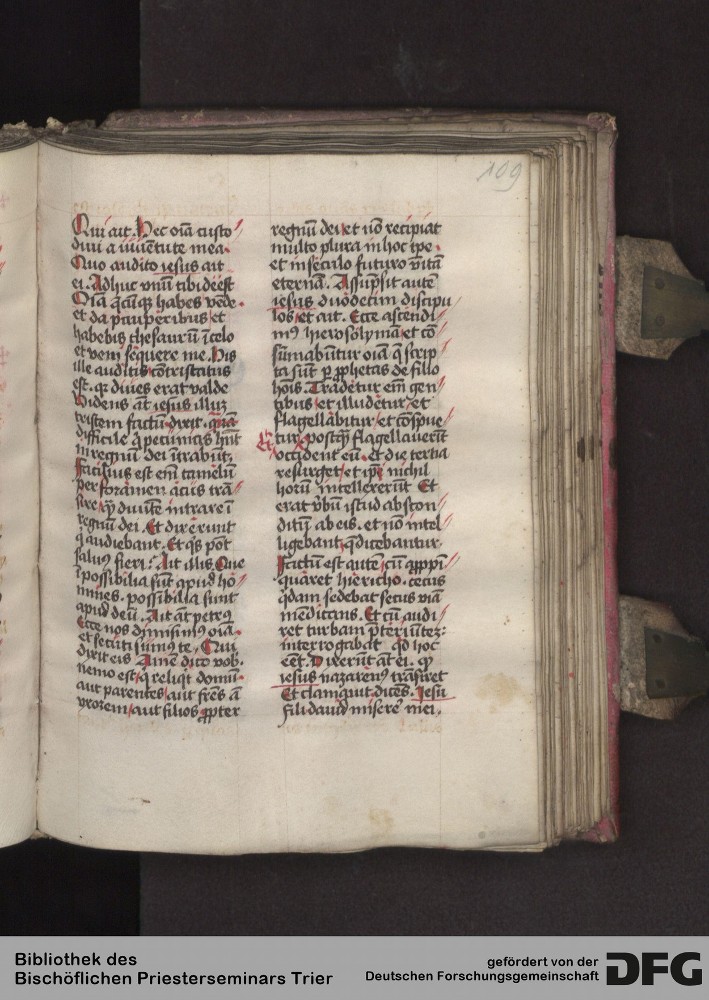 109
Qui ait. Hec oīa custo
diui a iuuētute mea.
Quo audito iesus ait
ei. Adhuc vnū tibi deest
Oīa q̄cūq; habes vēde.
et da paupēribus et
habebis thesaurū ī celo
et veni sequere me. His
ille auditis cōtristatus
est. q; diues erat valde
Videns āt iesus illū
tristem factū dixit. quā
difficile q̄ pecunias hn̄t
in regnū dei ītrabūt.
Facilius est em̄ camelū
per foramen acus trā
sire q̄ diuitē intrare ī
regnū dei. Et dixerunt
q̄ audiebant. Et q̄s pōt
saluus fieri. Ait illis. Que
īpossibilia sūt apud hō
mines. possibilia sunt
apud deū. Ait āt petrus
Ecce nos dimisimꝰ oīa
et secuti sumus te. Qui
dixit eis Amē dico vob.
nemo est q̄ reliqt domū
aut parentes aut frēs a
vxorem aut filios ꝓpter
regnū dei et nō recipiat
multo plura in hoc tpe.
et in seculo futuro vitā
eternā. Assūpsit autē
iesus duodecim discipu
los et ait. Ecce ascendi
mꝰ hierosolymā et cō
sūmabūtur oīa q̄ scrip
ta sūt p ꝓphetas de filio
hoīs. Tradetur em̄ gen
tibus et illudetur et
flagellabitur et cōspue
tur Et postq̄ flagellauerīt
occident eū. et die tertia
resurget et ipī nichil
horū intellexerūt Et
erat v̄bū istud abscon
ditū ab eis. et nō intel
ligebant q̄ dicebantur.
Factū est autē cū aꝓpī
quaret hiericho. cecus
q̄dam sedebat secus viā
mēdicans. Et cū audi
ret turbam p̄tereūtez:
interrogabat qd hoc
eēt. Dixerūt āt ei. ꝙ
iesus nazarenꝰ trāsiret
Et clamauit dicēs. Iesu
fili dauid miserē mei.
Bibliothek des
Bischöflichen Priesterseminars Trier
gefördert von der
Deutschen Forschungsgemeinschaft
DFG